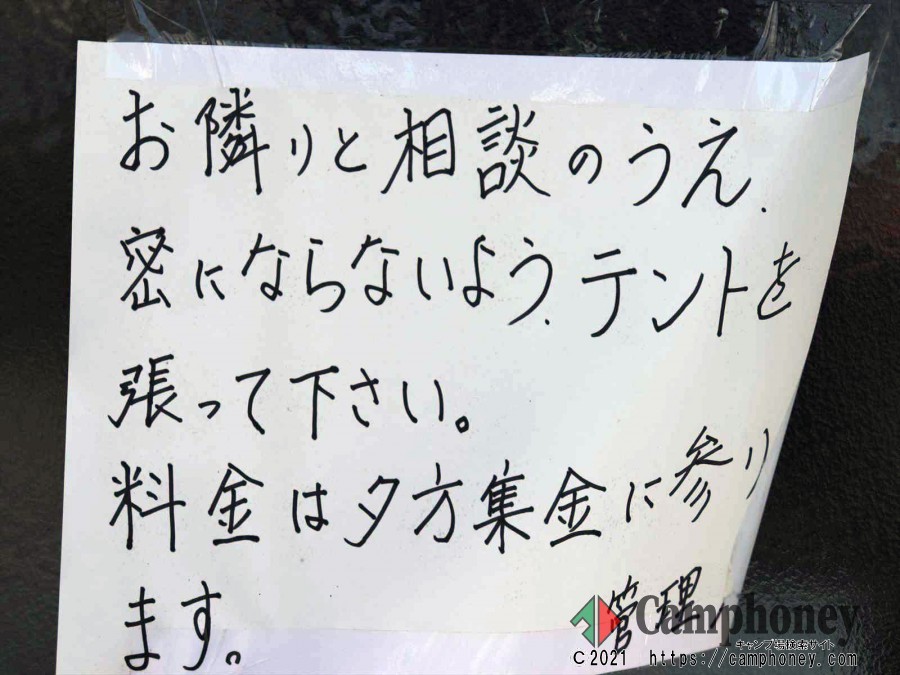 お隣りと相談のうえ、
密にならないよう、テントを
張って下さい。
料金は夕方集金に参り
ます。
管理
Camphoney
キャンプ場検索サイト
C2021 https://camphoney.com